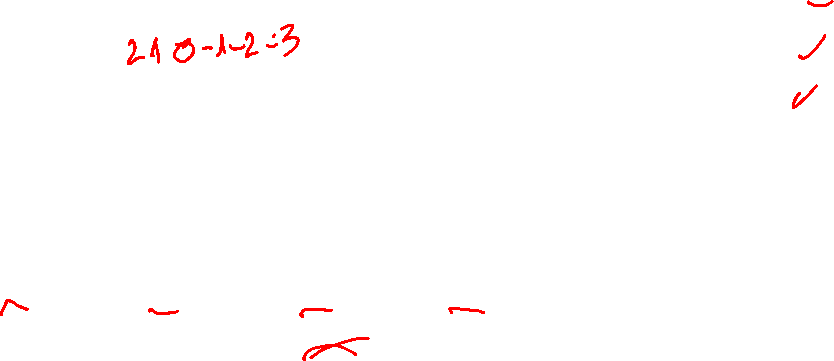 2 1 0 -1 -2 -3